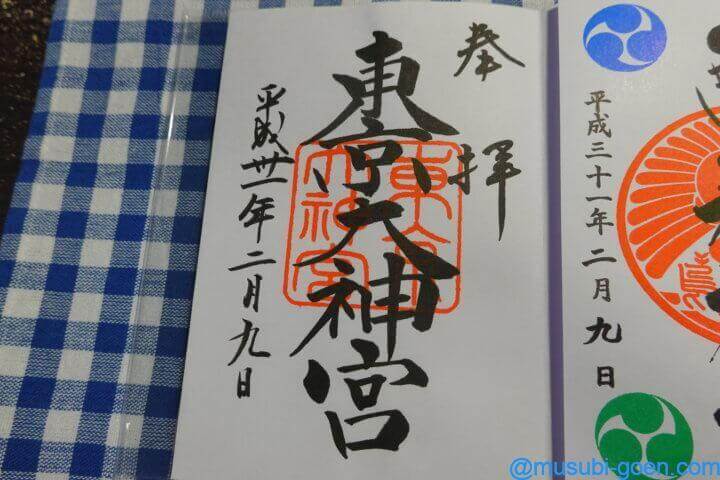 奉拝
東京大神宮
東京大神宮
平成卅一年二月九日
平成三十一年二月九日
@musubi-goen.com